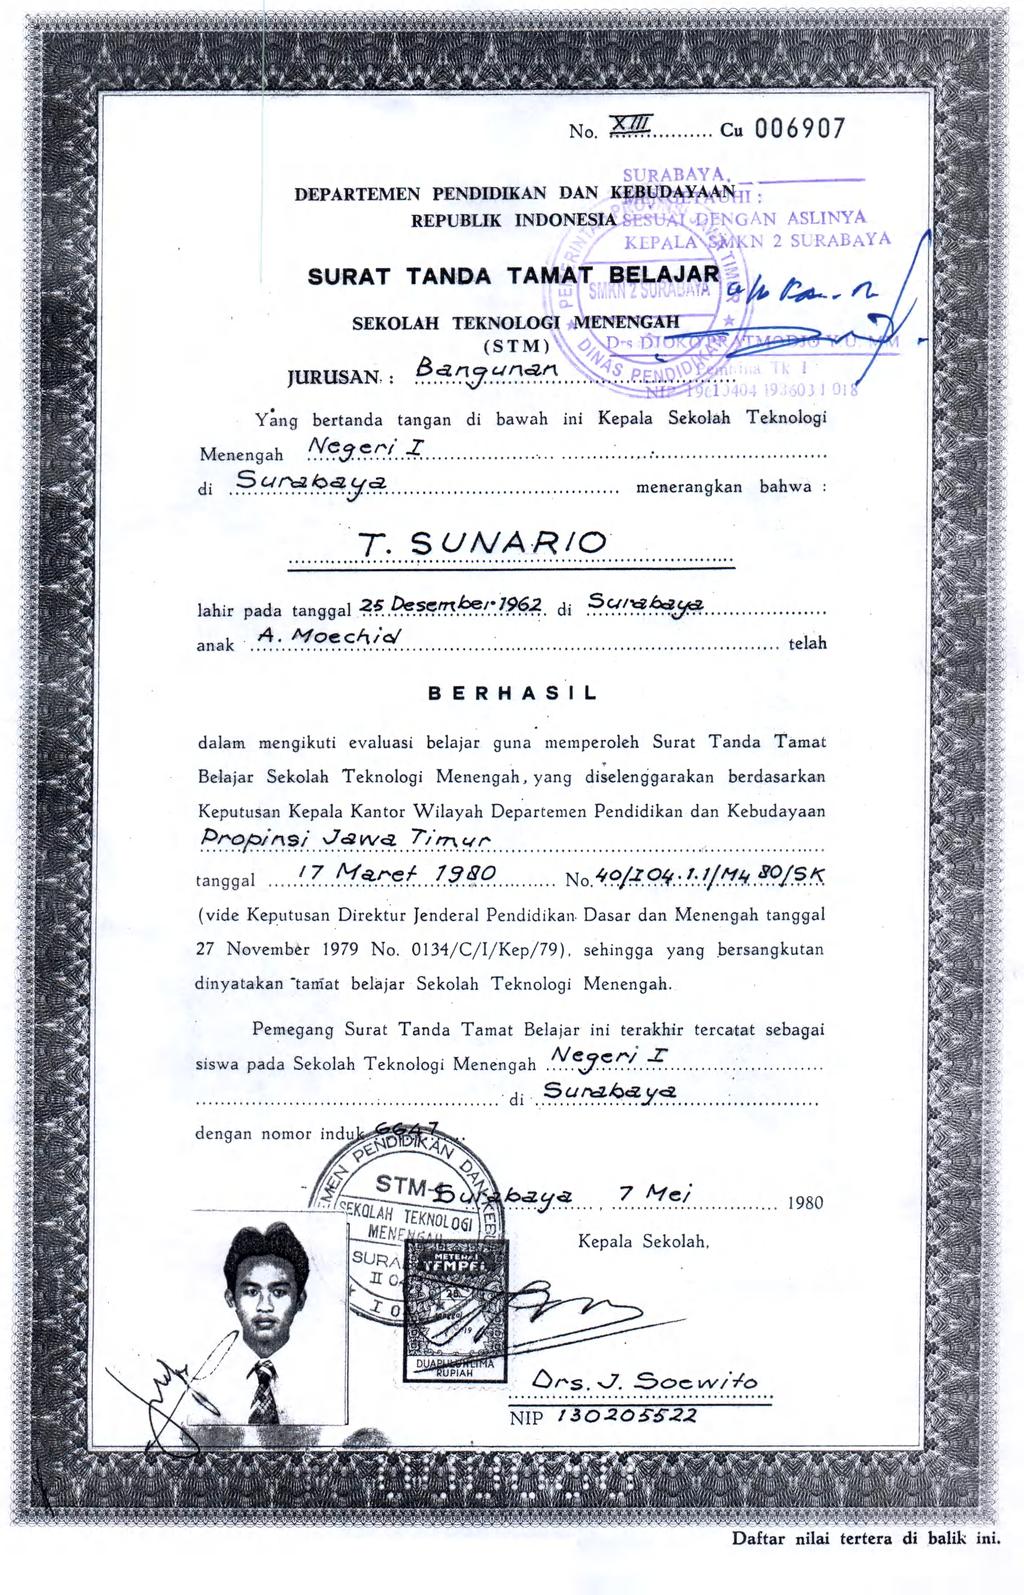 No. XIII Cu 006907
SURABAYA,
DEPARTEMEN PENDIDIKAN DAN KEBUDAYAAN
MENGETAHUI :
REPUBLIK INDONESIA
SESUAI DENGAN ASLINYA
KEPALA SMKN 2 SURABAYA
SURAT TANDA TAMAT BELAJAR
SMKN 2 SURABAYA
DINAS PENDIDIKAN
SEKOLAH TEKNOLOGI MENENGAH
(STM)
JURUSAN : Bangunan
Pembina Tk I
Yang bertanda tangan di bawah ini Kepala Sekolah Teknologi
Menengah Negeri I
di Surabaya menerangkan bahwa :
T. SUNARIO
lahir pada tanggal 25 Desember 1962 di Surabaya
anak A. Moechid telah
BERHASIL
dalam mengikuti evaluasi belajar guna memperoleh Surat Tanda Tamat
Belajar Sekolah Teknologi Menengah, yang diselenggarakan berdasarkan
Keputusan Kepala Kantor Wilayah Departemen Pendidikan dan Kebudayaan
Propinsi Jawa Timur
tanggal 17 Maret 1980 No. 40/I04.1.1/M4 80/SK
(vide Keputusan Direktur Jenderal Pendidikan Dasar dan Menengah tanggal
27 November 1979 No. 0134/C/I/Kep/79), sehingga yang bersangkutan
dinyatakan tamat belajar Sekolah Teknologi Menengah.
Pemegang Surat Tanda Tamat Belajar ini terakhir tercatat sebagai
siswa pada Sekolah Teknologi Menengah Negeri I
di Surabaya
dengan nomor induk 6647
Surabaya, 7 Mei 1980
SEKOLAH TEKNOLOGI
MENENGAH
Kepala Sekolah,
METERAI
TEMPEL
25
tanggal
19
DUAPULUHLIMA
RUPIAH
Drs. J. Soewito
NIP 130205522
Daftar nilai tertera di balik ini.